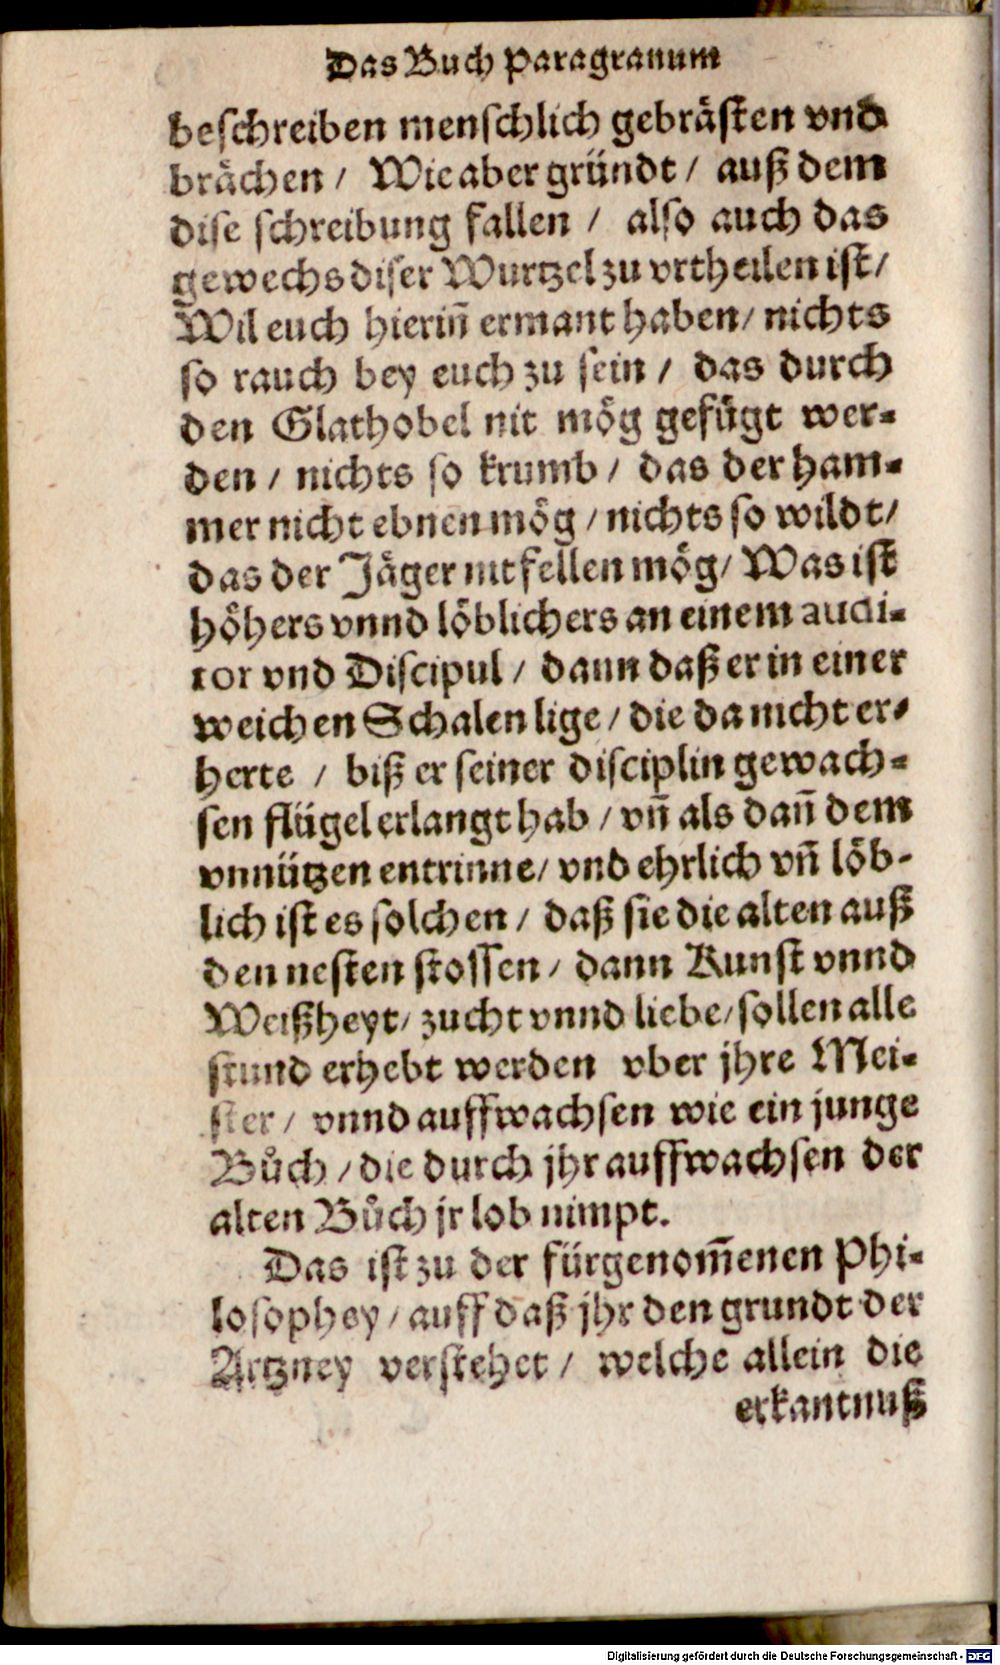 Das Buch Paragranum
beschreiben menschlich gebrästen vnd
brächen / Wie aber gründt / auß dem
dise schreibung fallen / also auch das
gewechs diser Wurtzel zu vrtheilen ist /
Wil euch hieriñ ermant haben / nichts
so rauch bey euch zu sein / das durch
den Glathobel nit mög gefügt wer-
den / nichts so krumb / das der ham-
mer nicht ebnen mög / nichts so wildt /
das der Jäger nit fellen mög / Was ist
höhers vnnd löblichers an einem audi-
tor vnd Discipul / dann daß er in einer
weichen Schalen lige / die da nicht er-
herte / biß er seiner disciplin gewach-
sen flügel erlangt hab / vñ als dañ dem
vnnützen entrinne / vnd ehrlich vñ löb-
lich ist es solchen / daß sie die alten auß
den nesten stossen / dann Kunst vnnd
Weißheyt / zucht vnnd liebe / sollen alle
stund erhebt werden vber jhre Mei-
ster / vnnd auffwachsen wie ein junge
Bůch / die durch jhr auffwachsen der
alten Bůch jr lob nimpt.
Das ist zu der fürgenom̃enen Phi-
losophey / auff daß jhr den grundt der
Artzney verstehet / welche allein die
erkantnuß
Digitalisierung gefördert durch die Deutsche Forschungsgemeinschaft - DFG